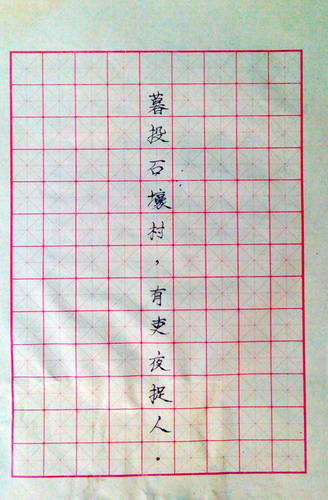 暮投石壤村，有吏夜捉人。